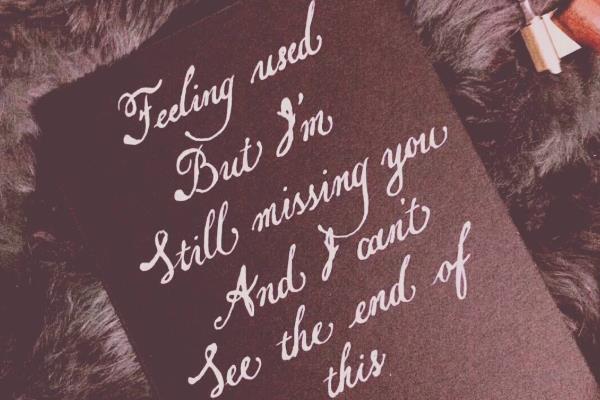 Feeling used
But I'm
Still missing you
And I can't
See the end of
this